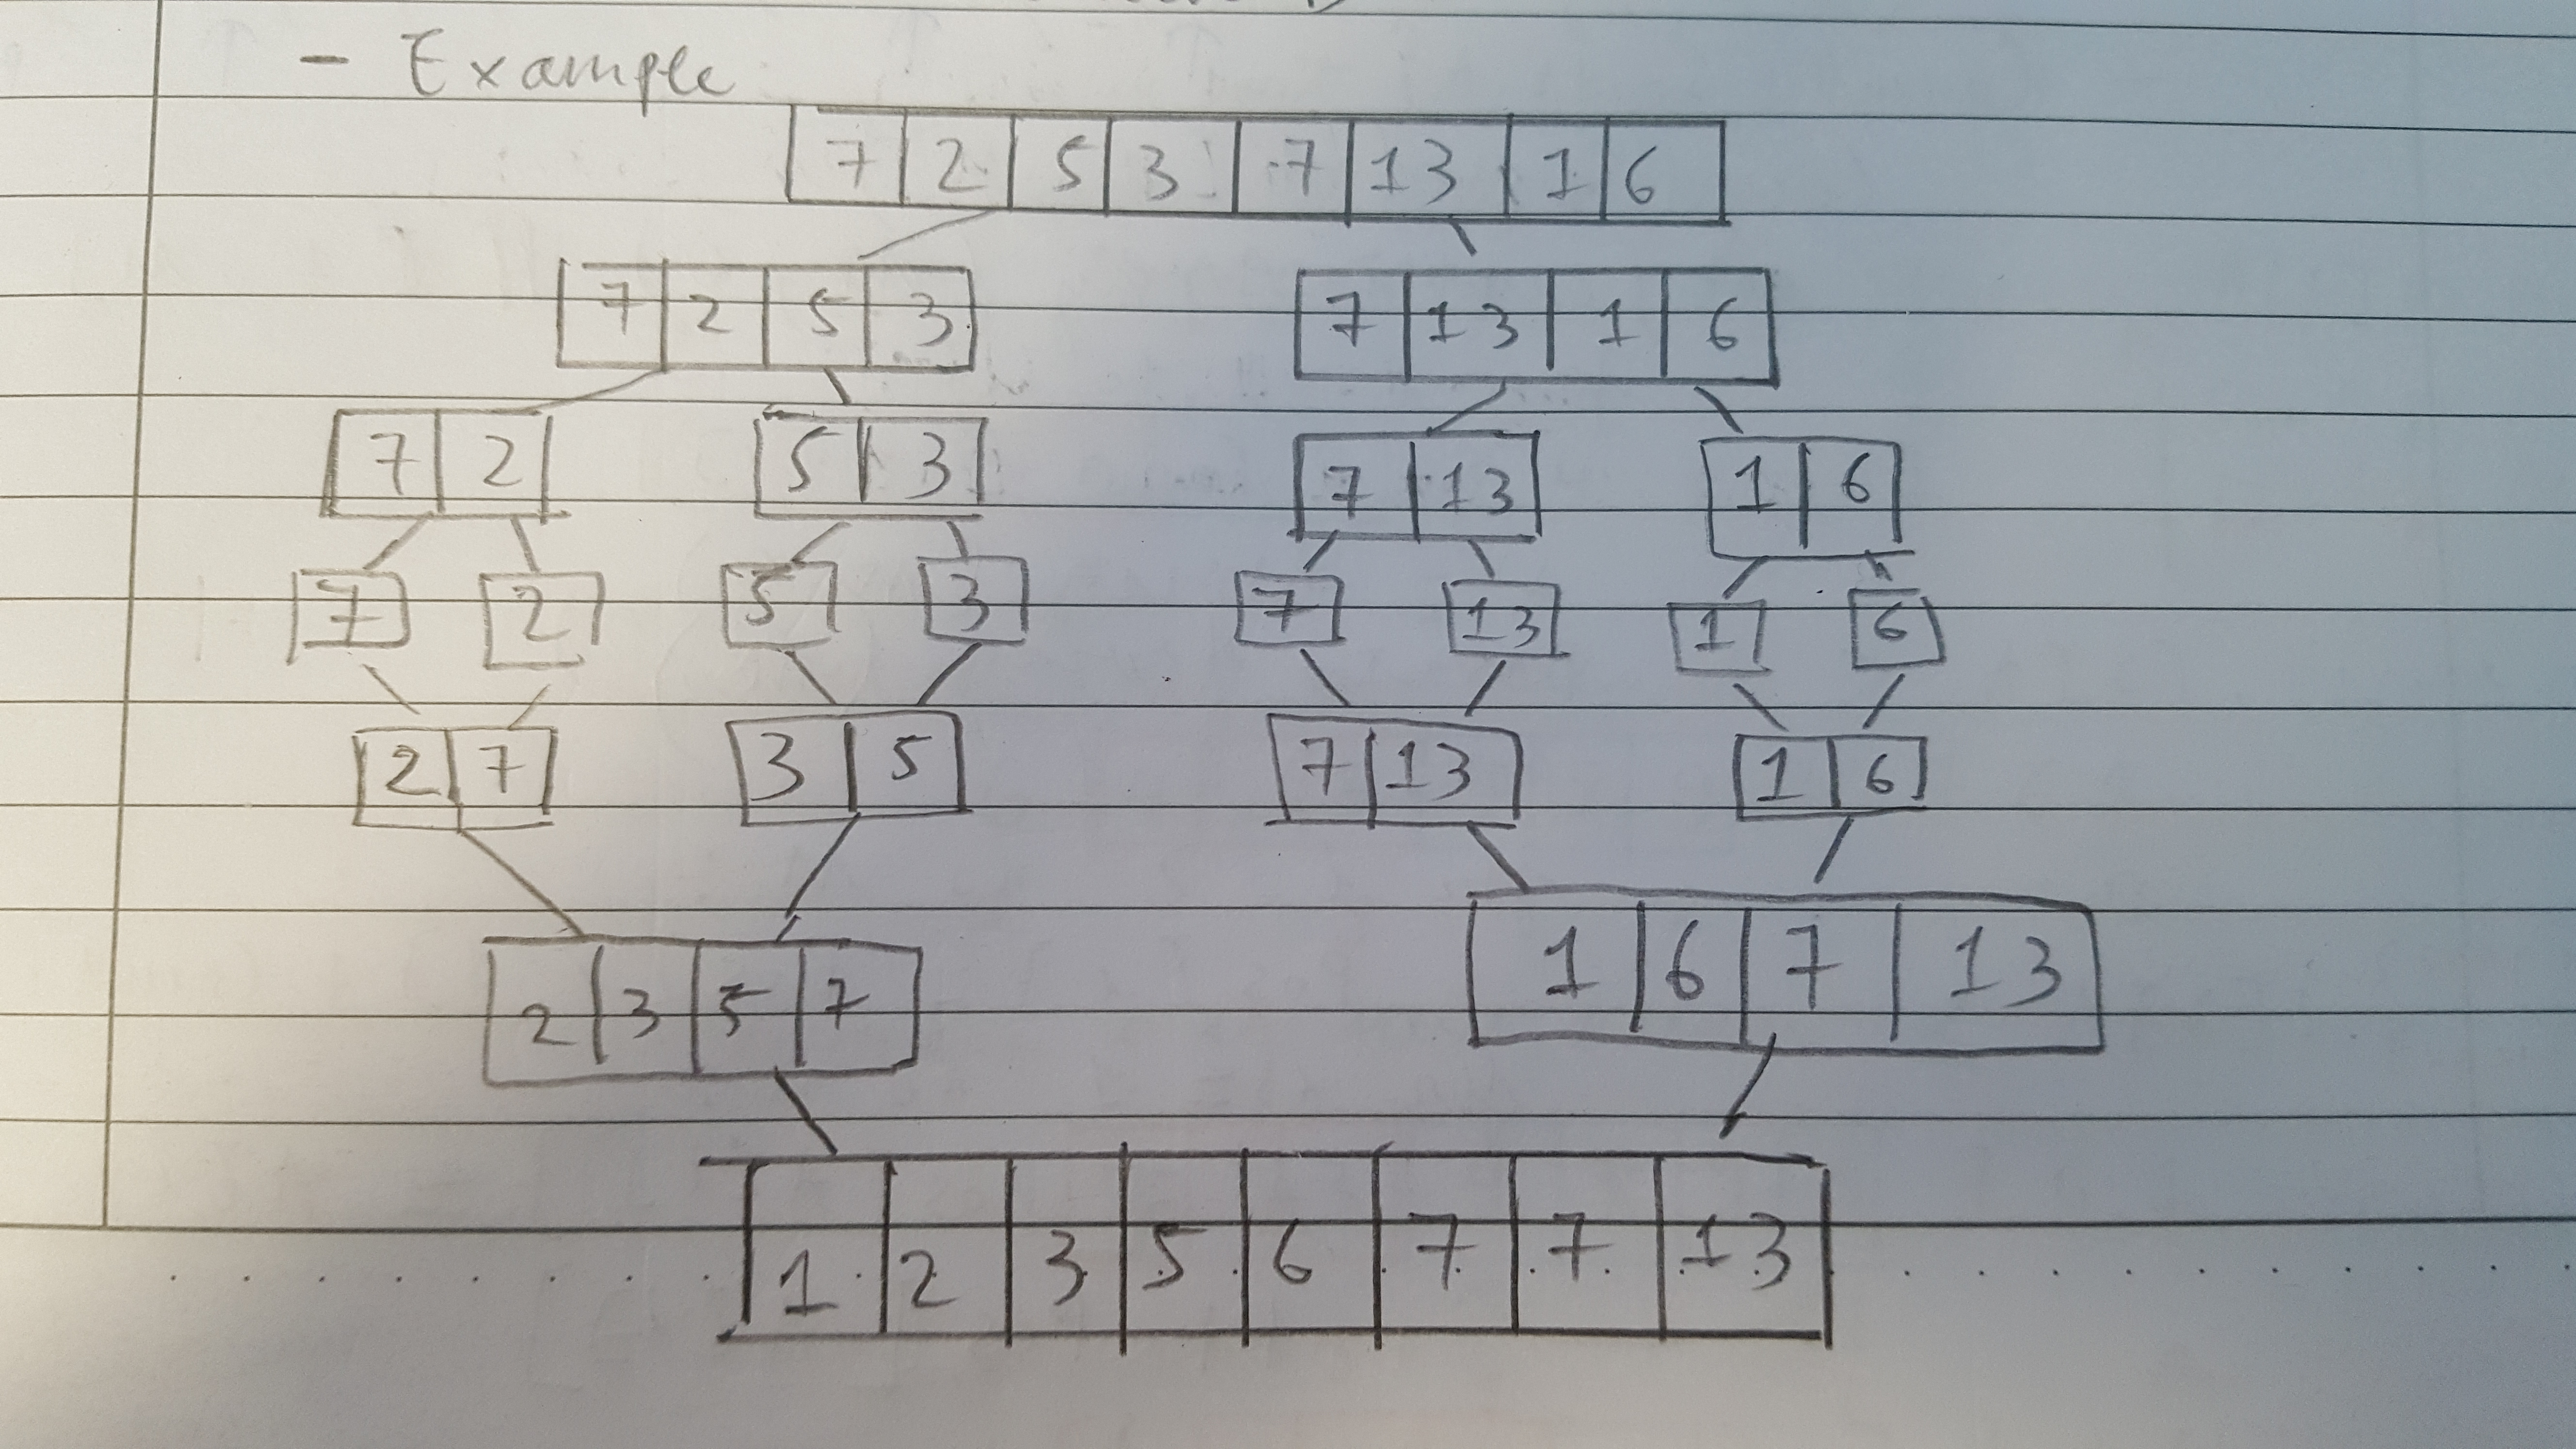 - Example
7 2 5 3 7 13 1 6
7 2 5 3 7 13 1 6
7 2 5 3 7 13 1 6
7 2 5 3 7 13 1 6
2 7 3 5 7 13 1 6
2 3 5 7 1 6 7 13
1 2 3 5 6 7 7 13